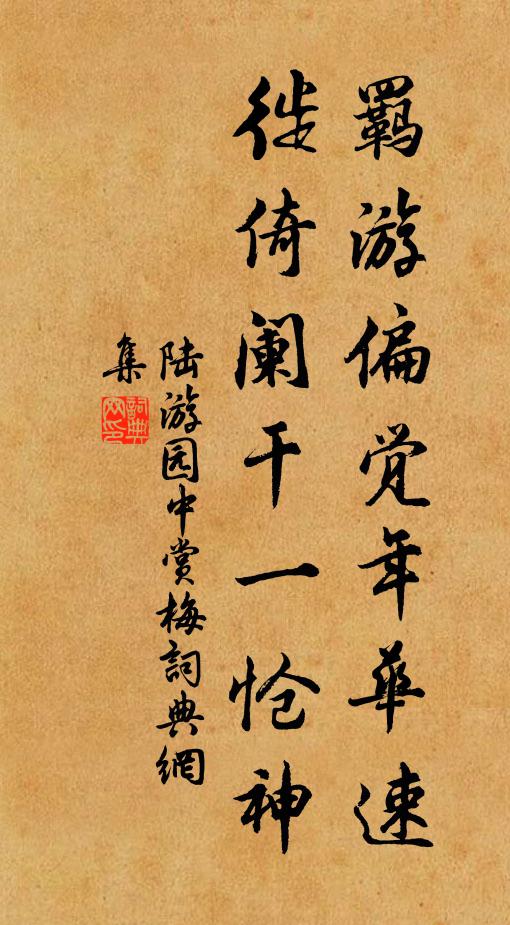 羁游偏觉年华速
徙倚阑干一怆神
陆游园中赏梅詞典網
集
詞典
网印